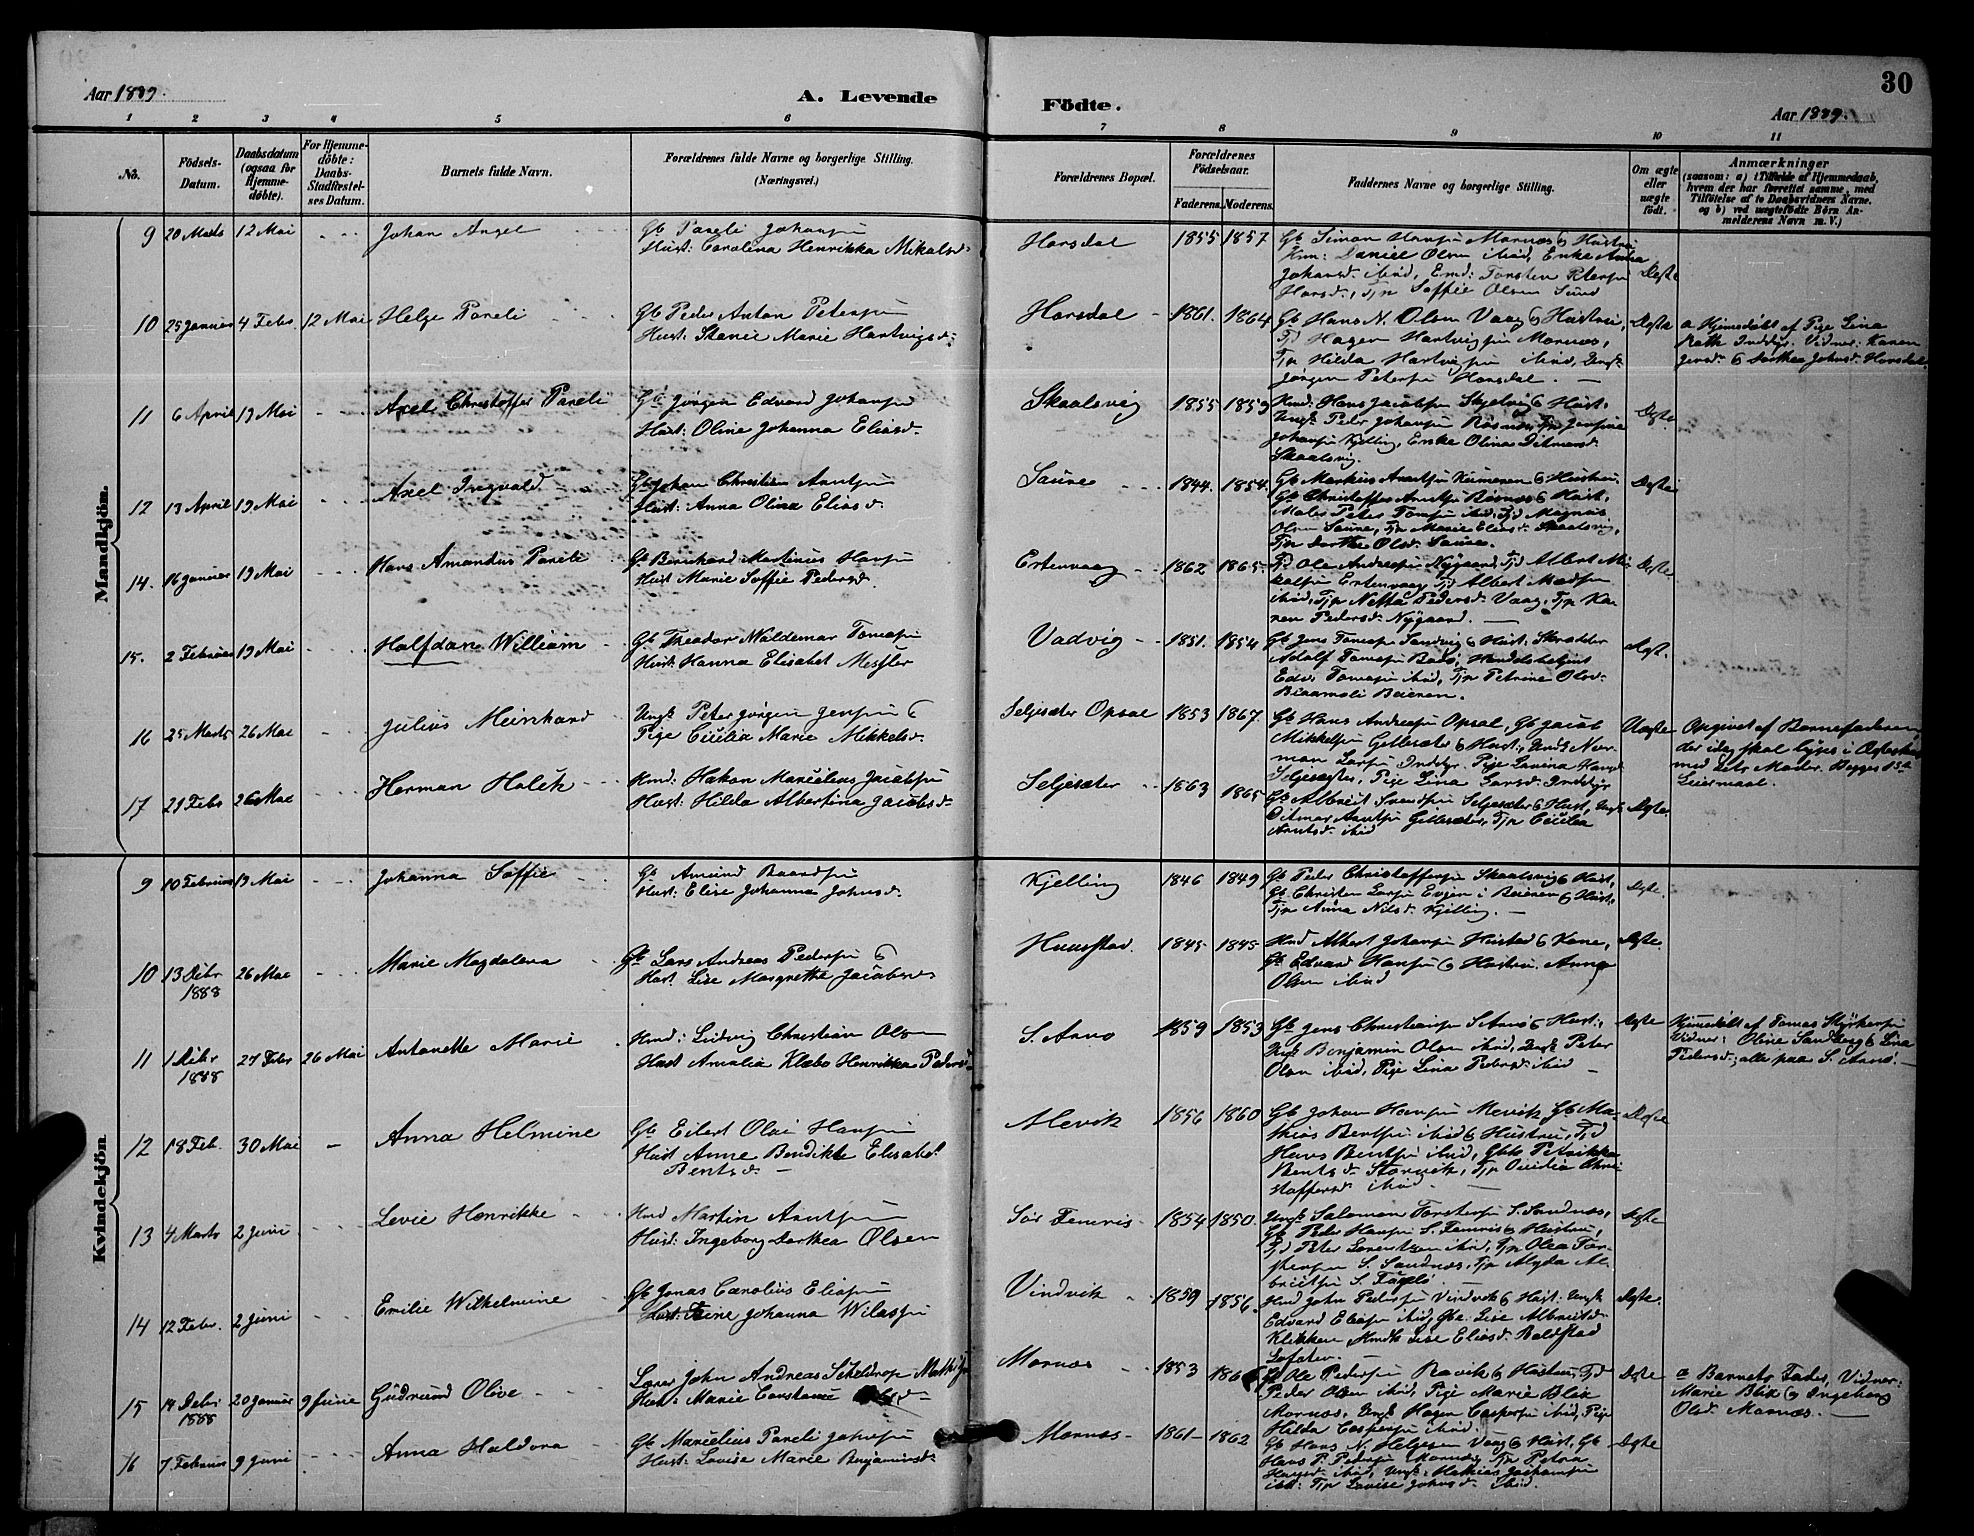 30
Aar 1889.
A. Levende
Födte.
Aar 1889.
1 2 3 4 5 6 7 8 9 10 11
No.
Födsels-
Datum.
Daabsdatum
(ogsaa for
Hjemme-
döbte).
For Hjemme-
döbte:
Daabs-
Stadfæstel-
ses Datum.
Barnets fulde Navn.
Forældrenes fulde Navne og borgerlige Stilling.
(Næringsvei.)
Forældrenes Bopæl.
Forældrenes
Födselsaar.
Faderens. Moderens.
Faddernes Navne og borgerlige Stilling.
Om ægte
eller
uægte
födt.
Anmærkninger
(saasom: a) i Tilfælde af Hjemmedaab,
hvem der har forrettet samme, med
Tilföielse af to Daabsvidners Navne.
og b) ved uægtefödte Börn An-
melderens Navn m. V.)
Mandkjön.
9 20 Marts 12 Mai Johan Angel
Gb Pareli Johansen
Hust: Carolina Henrikka Mikalsd.
Horsdal 1855 1857
Gb Simon Hansen Mornæs & Hustru
Daniel Olsen ibid, Enke Anna
Johansd. ibid, Torsten Petersen
Horsd., Tp Soffie Olsen Sund
Ægte
10 25 Januar 4 Febr. 12 Mai Helge Pareli
Gb Peder Anton Petersen
Hust: Stanie Marie Hartvigsd.
Horsdal 1861. 1864
Gb Hans N. Olsen Vaag & Hustru,
Tj Hagen Hartvigsen Mornæs,
Tp Hilda Hartvigsen ibid, Ungk.
Jörgen Petersen Horsdal.
Ægte
a Hjemdöbt af Pige Lina
Rath Inddyr. Vidner: Karen
Jensd. & Dorthea Johnsd. Horsdal.
11 6 April 19 Mai Axel Christoffer Pareli
Gb Jörgen Edvard Johansen
Hust: Oline Johanna Eliasd.
Skaalsvig 1855 1859
Kmd: Hans Jacobsen Skjelvig & Hust.
Ungk. Peder Johansen Rosnæs, Tp Jensine
Johansen Kjelling, Enke Olina Ditmarsd.
Skaalsvig.
Ægte
12 13 April 19 Mai Axel Ingvald
Gb Johan Christian Arntsen
Hust: Anna Olina Eliasd.
Saura 1844. 1854.
Gb Markus Arntsen & Hustru,
Gb Christoffer Arntsen Rosnæs & Hust.
Maler Peter Tomsen ibid, Tj Magnus
Olsen Saura, Tp Marie Eliasd. Skaalsvig,
Tp Dorthe Olsd. Saura.
Ægte
14. 16 Januar 19 Mai Hans Amandus Pareli
Gb Bernhard Martinus Hansen
Hust Marie Soffie Pedersd.
Ertenvaag 1862 1865.
Tj Ole Andreassen Nygaard, Tj Albert Mi-
kalsen Ertenvaag, Tj Albert Madsen
ibid, Tp Netta Pedersd. Vaag, Tp Ka-
ren Pedersd. Nygaard.
Ægte
15. 2 Februar 19 Mai Halfdan William
Gb Theodor Valdemar Tomasen
Hust: Hanna Elisabet Messler
Vadvig 1851. 1854
Gb Jens Tomasen Sandvig & Hust. Skrædder
Adolf Tomasen Bodö, Handelsbetjent
Edv. Tomasen ibid, Tp Petrine Olsd.
Beieren.
Ægte.
16 25 Marts 26 Mai Julius Meinhard
Ungk. Peter Jörgen Jensen &
Pige Cicilia Marie Mikkelsd.
Seljesæter Opsal 1853 1867
Gb Hans Andreasen Opsal, Gb Jacob
Mikkelsen Gillesæter & Hust., Ungk. Nor-
man Larsen Inddyr. Pige Lavina Hansd.
Seljesæter, Pige Lina Larsd. Inddyr
Uægte
Opgivet af Barnefaderen
der idag skal lyses i Ægteskab
med dets Moder. Begges 1ste
Leiermaal.
17 21 Febr 26 Mai Herman Halek
Kmd: Hakon Marcelius Jacobsen
Hust: Hilda Albertina Jacobsd.
Seljesæter 1863 1865
Gb Albrit Svendsen Seljesæter & Hust, Ungk.
Ditmar Arntsen Gillesæter, Tp Cicilia
Arntsd. ibid
Ægte.
Kvindekjön
9 10 Februar 19 Mai Johanna Soffie
Gb Amund Baardsen
Hust: Elise Johanna Johnsd.
Kjelling 1846 1849
Gb Peder Christoffersen Skaalsvig & Hust,
Gb Christen Larsen Evjen i Beieren & Hust.
Tp Anna Nilsd. Kjelling.
Ægte.
10 13 Debr 1888 26 Mai Marie Magdalena
Gb Lars Andreas Pedersen &
Hust. Lise Margrethe Jacobsen
Haugstad. 1845 1845
Kmd Albert Johansen Hustad & Kone,
Gb Edvard Hansen & Hustru. Anna
Olsen ibid
Ægte.
11 1 Debr 1888 27 Febr 26 Mai Antonette Marie
Kmd: Ludvig Christian Olsen
Hust Amalia Klæbo Henrikka Pedersd.
S. Arnö 1859 1853
Gb Jens Christiansen S. Arnö & Hust.,
Ungk. Benjamin Olsen ibid, Ungk Peter
Olsen ibid, Pige Lina Pedersd. ibid
Ægte
Hjemdöbt af Tomas
Vidner: Oline Sandberg & Lina
Pedersd; alle paa S. Arnö.
12 18 Feb. 30 Mai Anna Helmine
Gb Eilert Olai Hansen
Hust Anne Bendikte Elisabet
Bentsd.
Mevik 1856 1860
Gb Johan Hansen Mevik Gb Ma-
thias Bentsen ibid & Hustru, Tj
Hans Bentsen ibid, Petrikka
Bentsd. Storvik, Tp Cicilia Chri-
stoffersd. ibid.
Ægte
13 4 Marts 2 Juni Levie Henrikke
Kmd Martin Arntsen
Hust: Ingeborg Dorthea Olsen
Sör Femris 1854 1850.
Ungk. Salomon Torstensen S. Sandnæs,
Gb Peder Hansen S. Femris & Hustru,
Tj Peter Lorentzen ibid, Tp Olea Tor-
stensen S. Sandnæs, Tp Alyda Al-
brigtsen S. Fugelö.
Ægte
14 12 Febr. 2 Juni Emilie Wilhelmine
Gb Jonas Carolius Eliasen
Hust: Johanna Wilassen
Vindvik 1859 1856.
Kmd John Pedersen Vindvik & Hust. Ungk
Edvard Eliasen ibid, Lise Albrigtsd.
Klikken Kmdk Lise Eliasd. Balstad
Lofoten.
Ægte.
15 14 Debr. 1888 20 Januar 9 Juni Gudrund Olive
Lærer John Andreas Skeldrop Mathisen
Hust: Marie Constance
Mornæs 1853
Gb Ole Pedersen Ravik & Hustru, Tj
Peder Olsen ibid, Pige Marie Blix
Mornæs, Ungk Hagen Caspersen ibid, Pige
Hilda Caspersen ibid.
Ægte
a Barnets Fader, Vidner:
Marie Blix & Ingeborg
Olsd. Mornæs.
16 7 Februar 9 Juni Anna Haldora
Gb Marcelius Pareli Johnsen
Hust: Lovise Marie Benjaminsd.
Mornæs 1861 1862
Gb Hans N. Helgesen Vaag & Hust, Gb
Hans P. Pedersen Mornæs, Tp Petra
Hagesd. ibid, Ungk. Mathias Joachimsen
ibid. Tp Lovise Johnsd. ibid.
Ægte